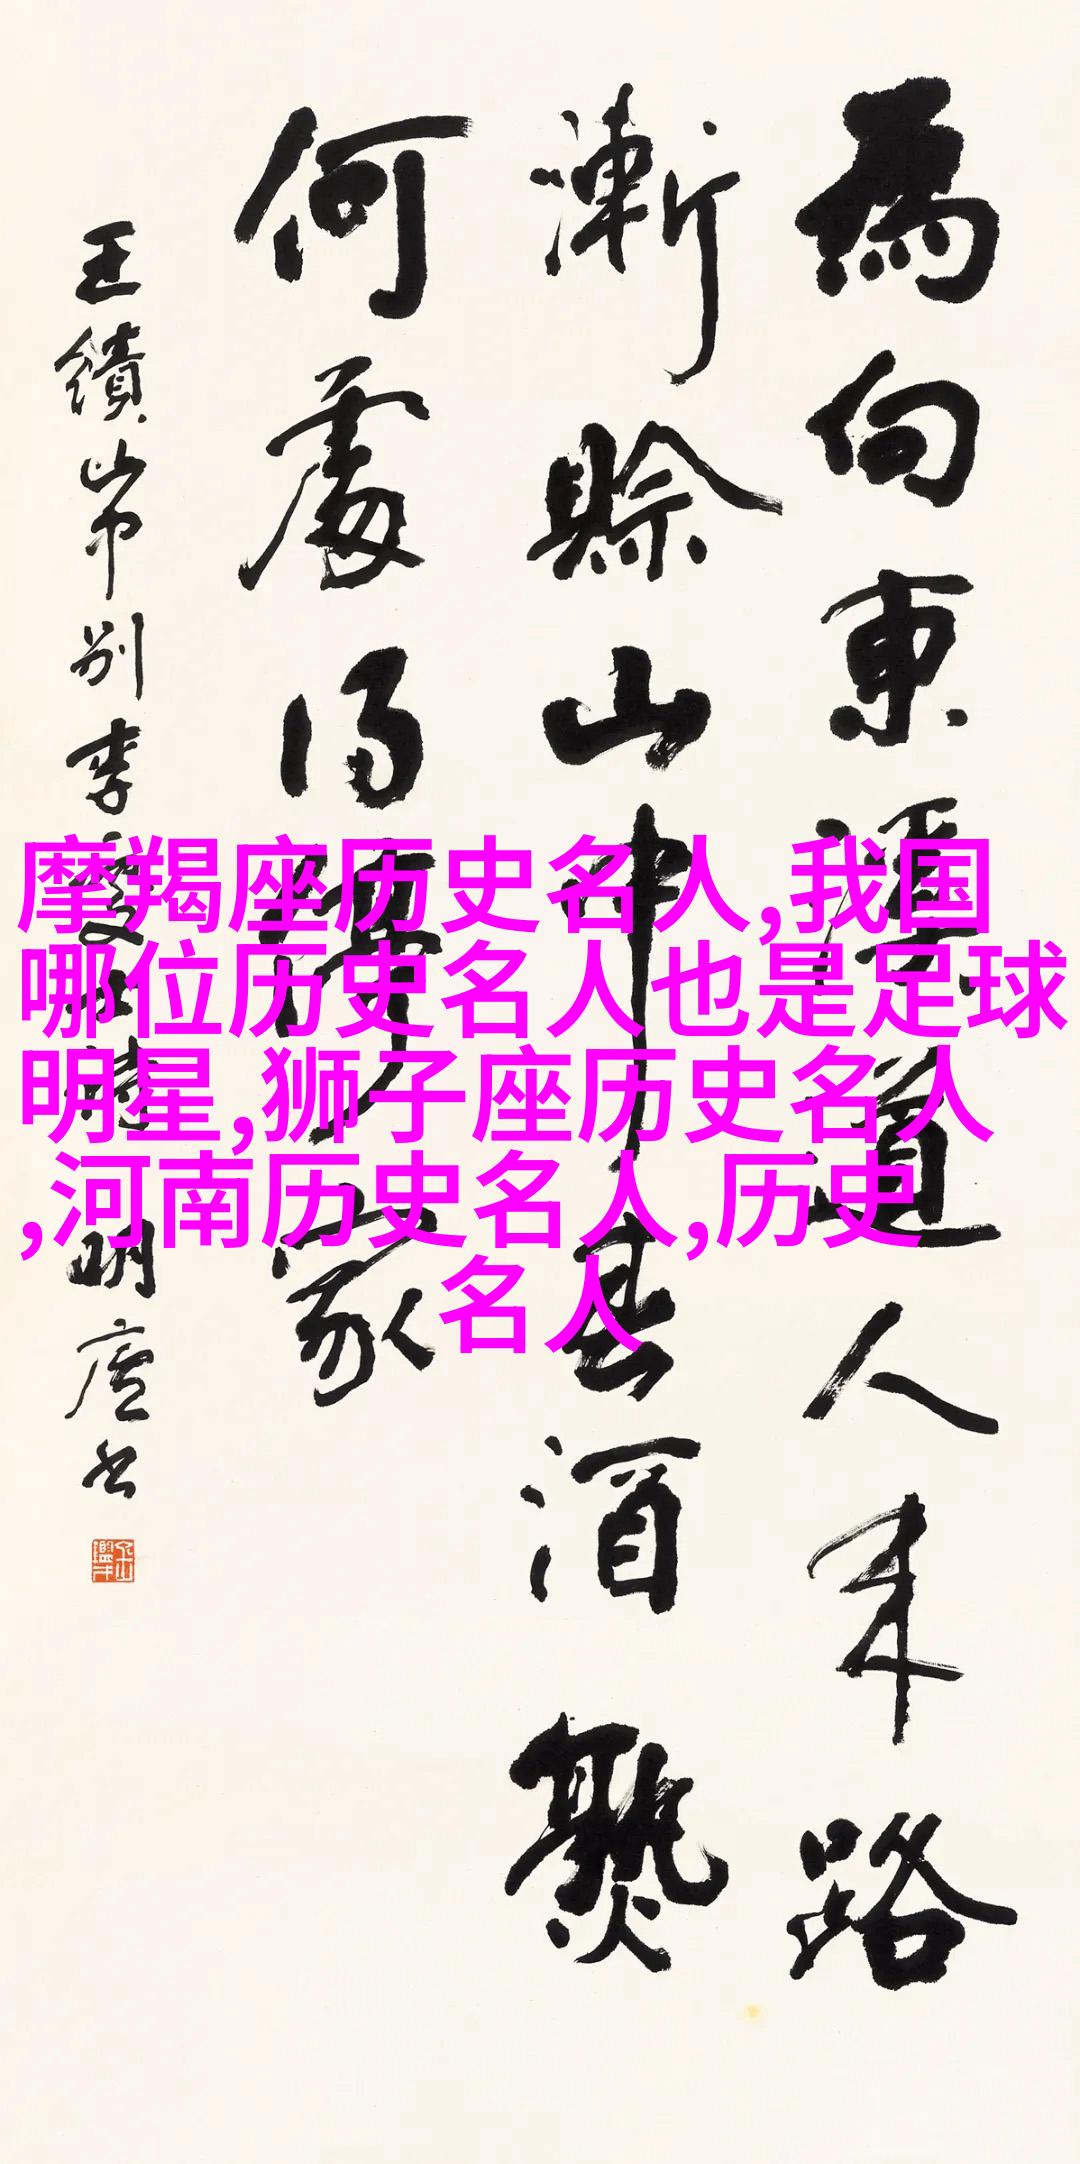 為向東溪道人来路
漸賒山中春酒熟
何處得停家
王績山中别李處士詩 明廬书
摩羯座历史名人,我国
哪位历史名人也是足球
明星,狮子座历史名人
,河南历史名人,历史
名人